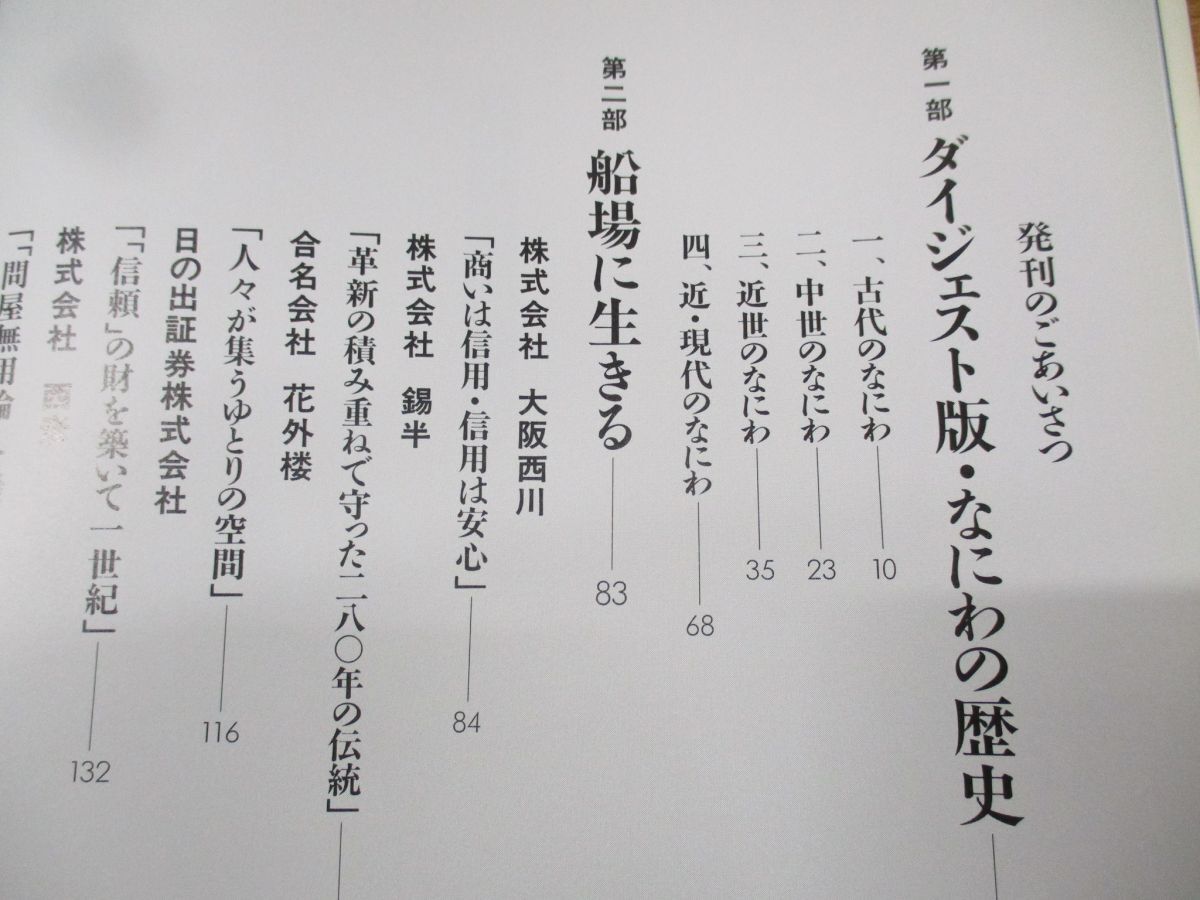 発刊のごあいさつ
第一部 ダイジェスト版・なにわの歴史
一、古代のなにわ 10
二、中世のなにわ 23
三、近世のなにわ 35
四、近・現代のなにわ 68
第二部 船場に生きる 83
株式会社 大阪西川
「商いは信用・信用は安心」 84
株式会社 錫半
「革新の積み重ねで守った二八〇年の伝統」
合名会社 花外楼
「人々が集うゆとりの空間」 116
日の出証券株式会社
「「信頼」の財を築いて一世紀」 132
株式会社
「「問屋無用論